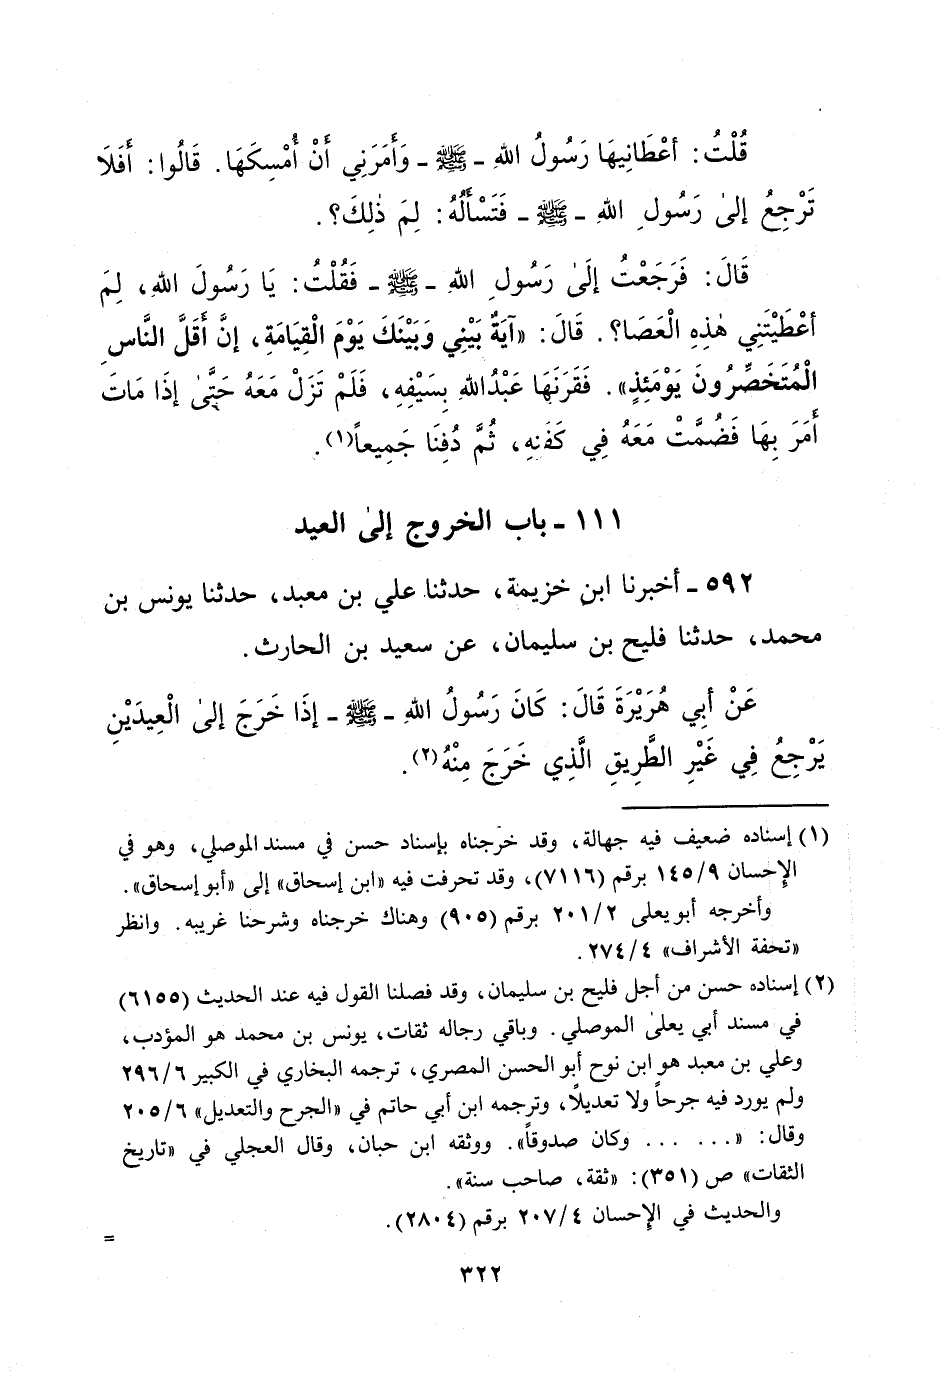 قُلْتُ: أَعْطَانِيهَا رَسُولُ اللهِ - ﷺ - وَأَمَرَنِي أَنْ أُمْسِكَهَا. قَالُوا: أَفَلَا
تَرْجِعُ إِلىٰ رَسُولِ اللهِ - ﷺ - فَتَسْأَلُهُ: لِمَ ذٰلِكَ؟.
قَالَ: فَرَجَعْتُ إِلَىٰ رَسُولِ اللهِ - ﷺ - فَقُلْتُ: يَا رَسُولَ اللهِ، لِمَ
أَعْطَيْتَنِي هٰذِهِ الْعَصَا؟. قَالَ: «آيَةٌ بَيْنِي وَبَيْنَكَ يَوْمَ الْقِيَامَةِ، إِنَّ أَقَلَّ النَّاسِ
الْمُتَخَصِّرُونَ يَوْمَئِذٍ». فَقَرَنَهَا عَبْدُاللهِ بِسَيْفِهِ، فَلَمْ تَزَلْ مَعَهُ حَتَّىٰ إِذَا مَاتَ
أَمَرَ بِهَا فَضُمَّتْ مَعَهُ فِي كَفَنِهِ، ثُمَّ دُفِنَا جَمِيعاً(١).
١١١ - باب الخروج إلىٰ العيد
٥٩٢ - أخبرنا ابن خزيمة، حدثنا علي بن معبد، حدثنا يونس بن
محمد، حدثنا فليح بن سليمان، عن سعيد بن الحارث.
عَنْ أَبِي هُرَيْرَةَ قَالَ: كَانَ رَسُولُ اللهِ - ﷺ - إِذَا خَرَجَ إِلىٰ الْعِيدَيْنِ
يَرْجِعُ فِي غَيْرِ الطَّرِيقِ الَّذِي خَرَجَ مِنْهُ(٢).
(١) إسناده ضعيف فيه جهالة، وقد خرجناه بإسناد حسن في مسند الموصلي، وهو في
الإحسان ١٤٥/٩ برقم (٧١١٦)، وقد تحرفت فيه «ابن إسحاق» إلى «أبو إسحاق».
وأخرجه أبو يعلى ٢٠١/٢ برقم (٩٠٥) وهناك خرجناه وشرحنا غريبه. وانظر
«تحفة الأشراف» ٢٧٤/٤.
(٢) إسناده حسن من أجل فليح بن سليمان، وقد فصلنا القول فيه عند الحديث (٦١٥٥)
في مسند أبي يعلىٰ الموصلي. وباقي رجاله ثقات، يونس بن محمد هو المؤدب،
وعلي بن معبد هو ابن نوح أبو الحسن المصري، ترجمه البخاري في الكبير ٢٩٦/٦
ولم يورد فيه جرحاً ولا تعديلاً، وترجمه ابن أبي حاتم في «الجرح والتعديل» ٢٠٥/٦
وقال: «... ... وكان صدوقاً». ووثقه ابن حبان، وقال العجلي في «تاريخ
الثقات» ص (٣٥١): «ثقة، صاحب سنة».
والحديث في الإحسان ٢٠٧/٤ برقم (٢٨٠٤).
=
٣٢٢